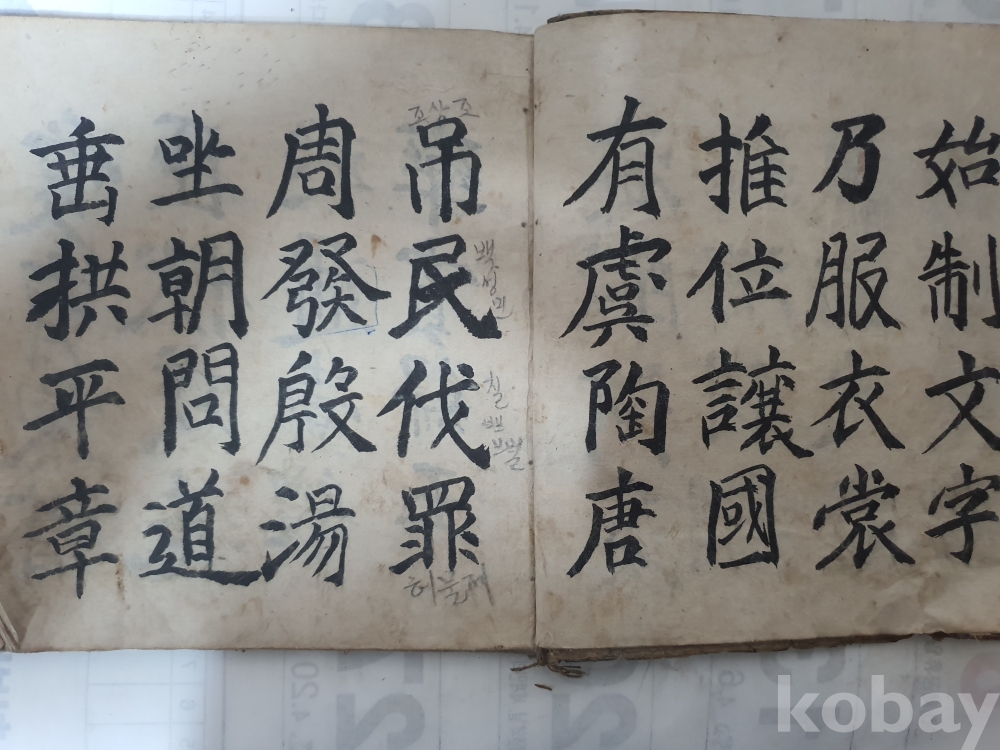 始制文字
乃服衣裳
推位讓國
有虞陶唐
吊民伐罪
조상조
백성민
칠 벌
허물죄
周發殷湯
坐朝問道
垂拱平章
kobay